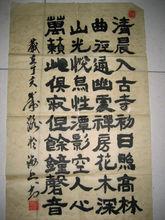 清晨入古寺初日照高林
曲逕通幽處禪房花木深
山光悅鳥性潭影空人心
萬籟此俱寂但餘鐘磬音
歲在丁亥於海上